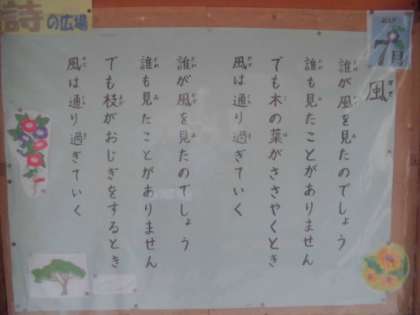 詩の広場
7月
風
誰が風を見たのでしょう
誰も見たことがありません
でも木の葉がささやくとき
風は通り過ぎていく
誰が風を見たのでしょう
誰も見たことがありません
でも枝がおじぎをするとき
風は通り過ぎていく